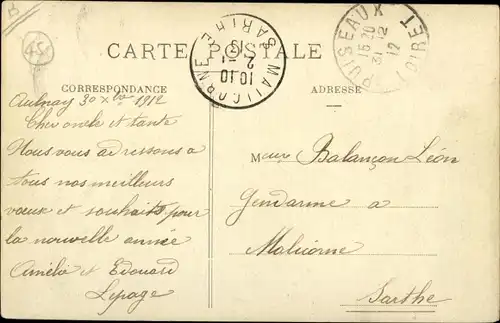 B
45
CARTE POSTALE
MALICORNE
10·10
2-1
SARTHE
PUISEAUX
15 30
31 12
12
LOIRET
CORRESPONDANCE
ADRESSE
Aulnay 30 Xbre 1912
Cher oncle et tante
Nous vous adressons a
tous nos meilleurs
voeux et souhaits pour
la nouvelle année
Amélie et Edouard
Lepage
Meux Balançon Léon
Gendarme a
Malicorne
Sarthe